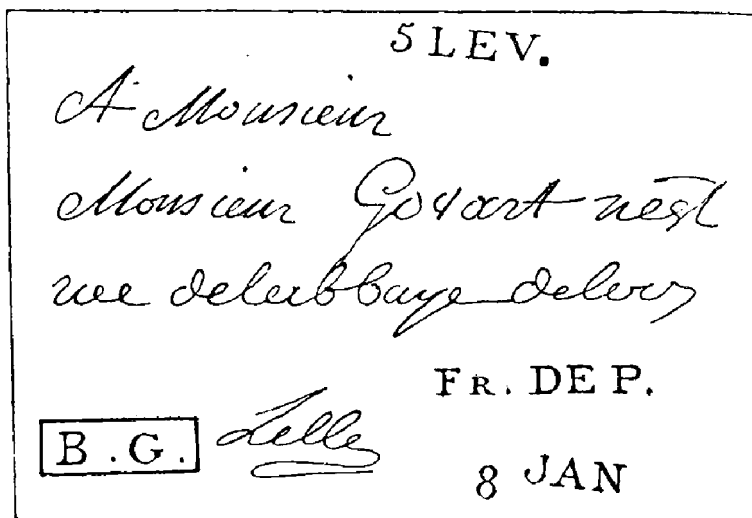 5 LEV.
A Monsieur
Monsieur Govart negt
rue delabbaye deloos
FR. DE P.
B.G. Lille
8 JAN